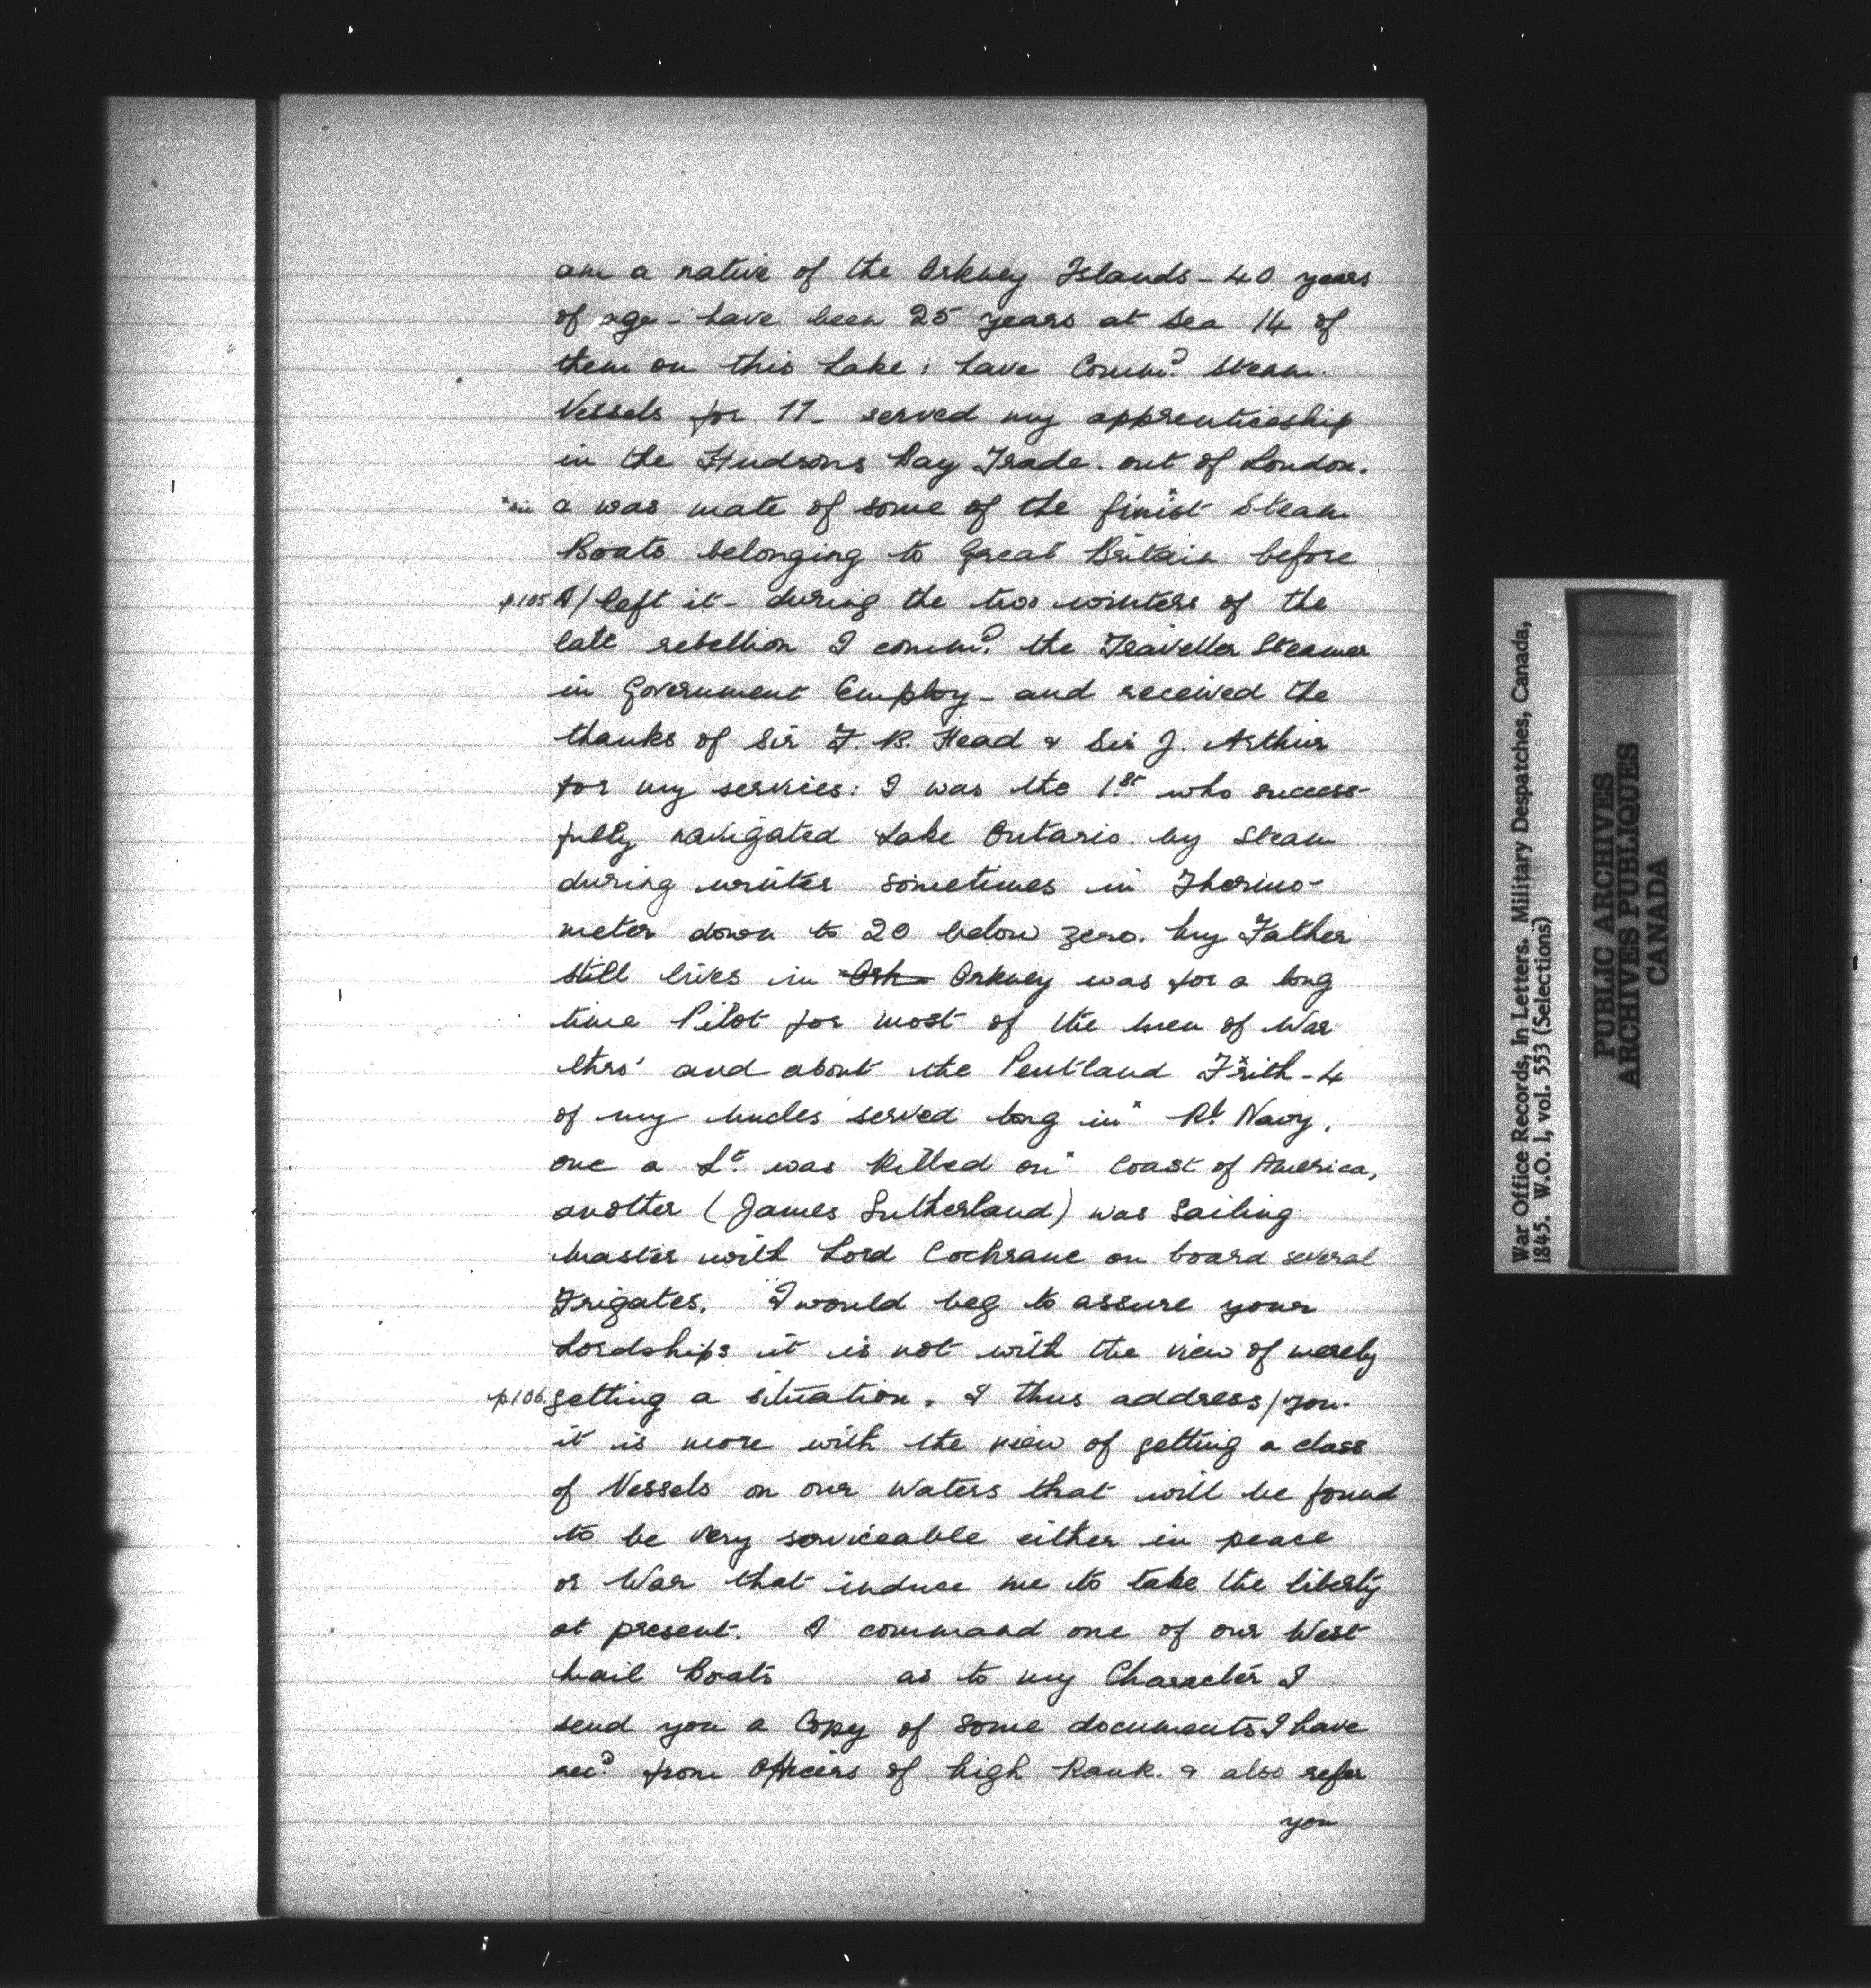 am a native of the Orkney Islands - 40 years
of age - have been 25 years at Sea 14 of
them on this Lake: have Comm.d Steam
Vessels for 11 - served my apprenticeship
in the Hudsons Bay Trade. out of London.
*sic a was mate of some of the finist* Steam
Boats belonging to Great Britain before
p.105 I/ left it - during the two winters of the
late rebellion I comm.d the Traveller Steamer
in Government Employ - and received the
thanks of Sir F. B. Head & Sir J. Arthur
for my services: I was the 1.st who success-
fully navigated Lake Ontario. by Steam
during winter sometimes in Thermo-
meter down to 20 below zero. My Father
still lives in Ork Orkney was for a long
time Pilot for most of the Men of War
thro' and about the Pentland Frith* - 4
of my Uncles served long in* Rl. Navy,
one a Lt. was Killed on* Coast of America,
another (James Sutherland) was Sailing
Master with Lord Cochrane on board several
Frigates. I would beg to assure your
Lordships it is not with the view of merely
p106. getting a situation. I thus address/you.
it is more with the view of getting a class
of Vessels on our Waters that will be found
to be very serviceable either in peace
or War that induce me to take the liberty
at present. I command one of our West
Mail Boats as to my Character I
send you a Copy of some documents I have
rec.d from Officers of high Rank. & also refer
you
War Office Records, In Letters. Military Despatches, Canada,
1845. W.O. 1, vol. 553 (Selections)
PUBLIC ARCHIVES
ARCHIVES PUBLIQUES
CANADA